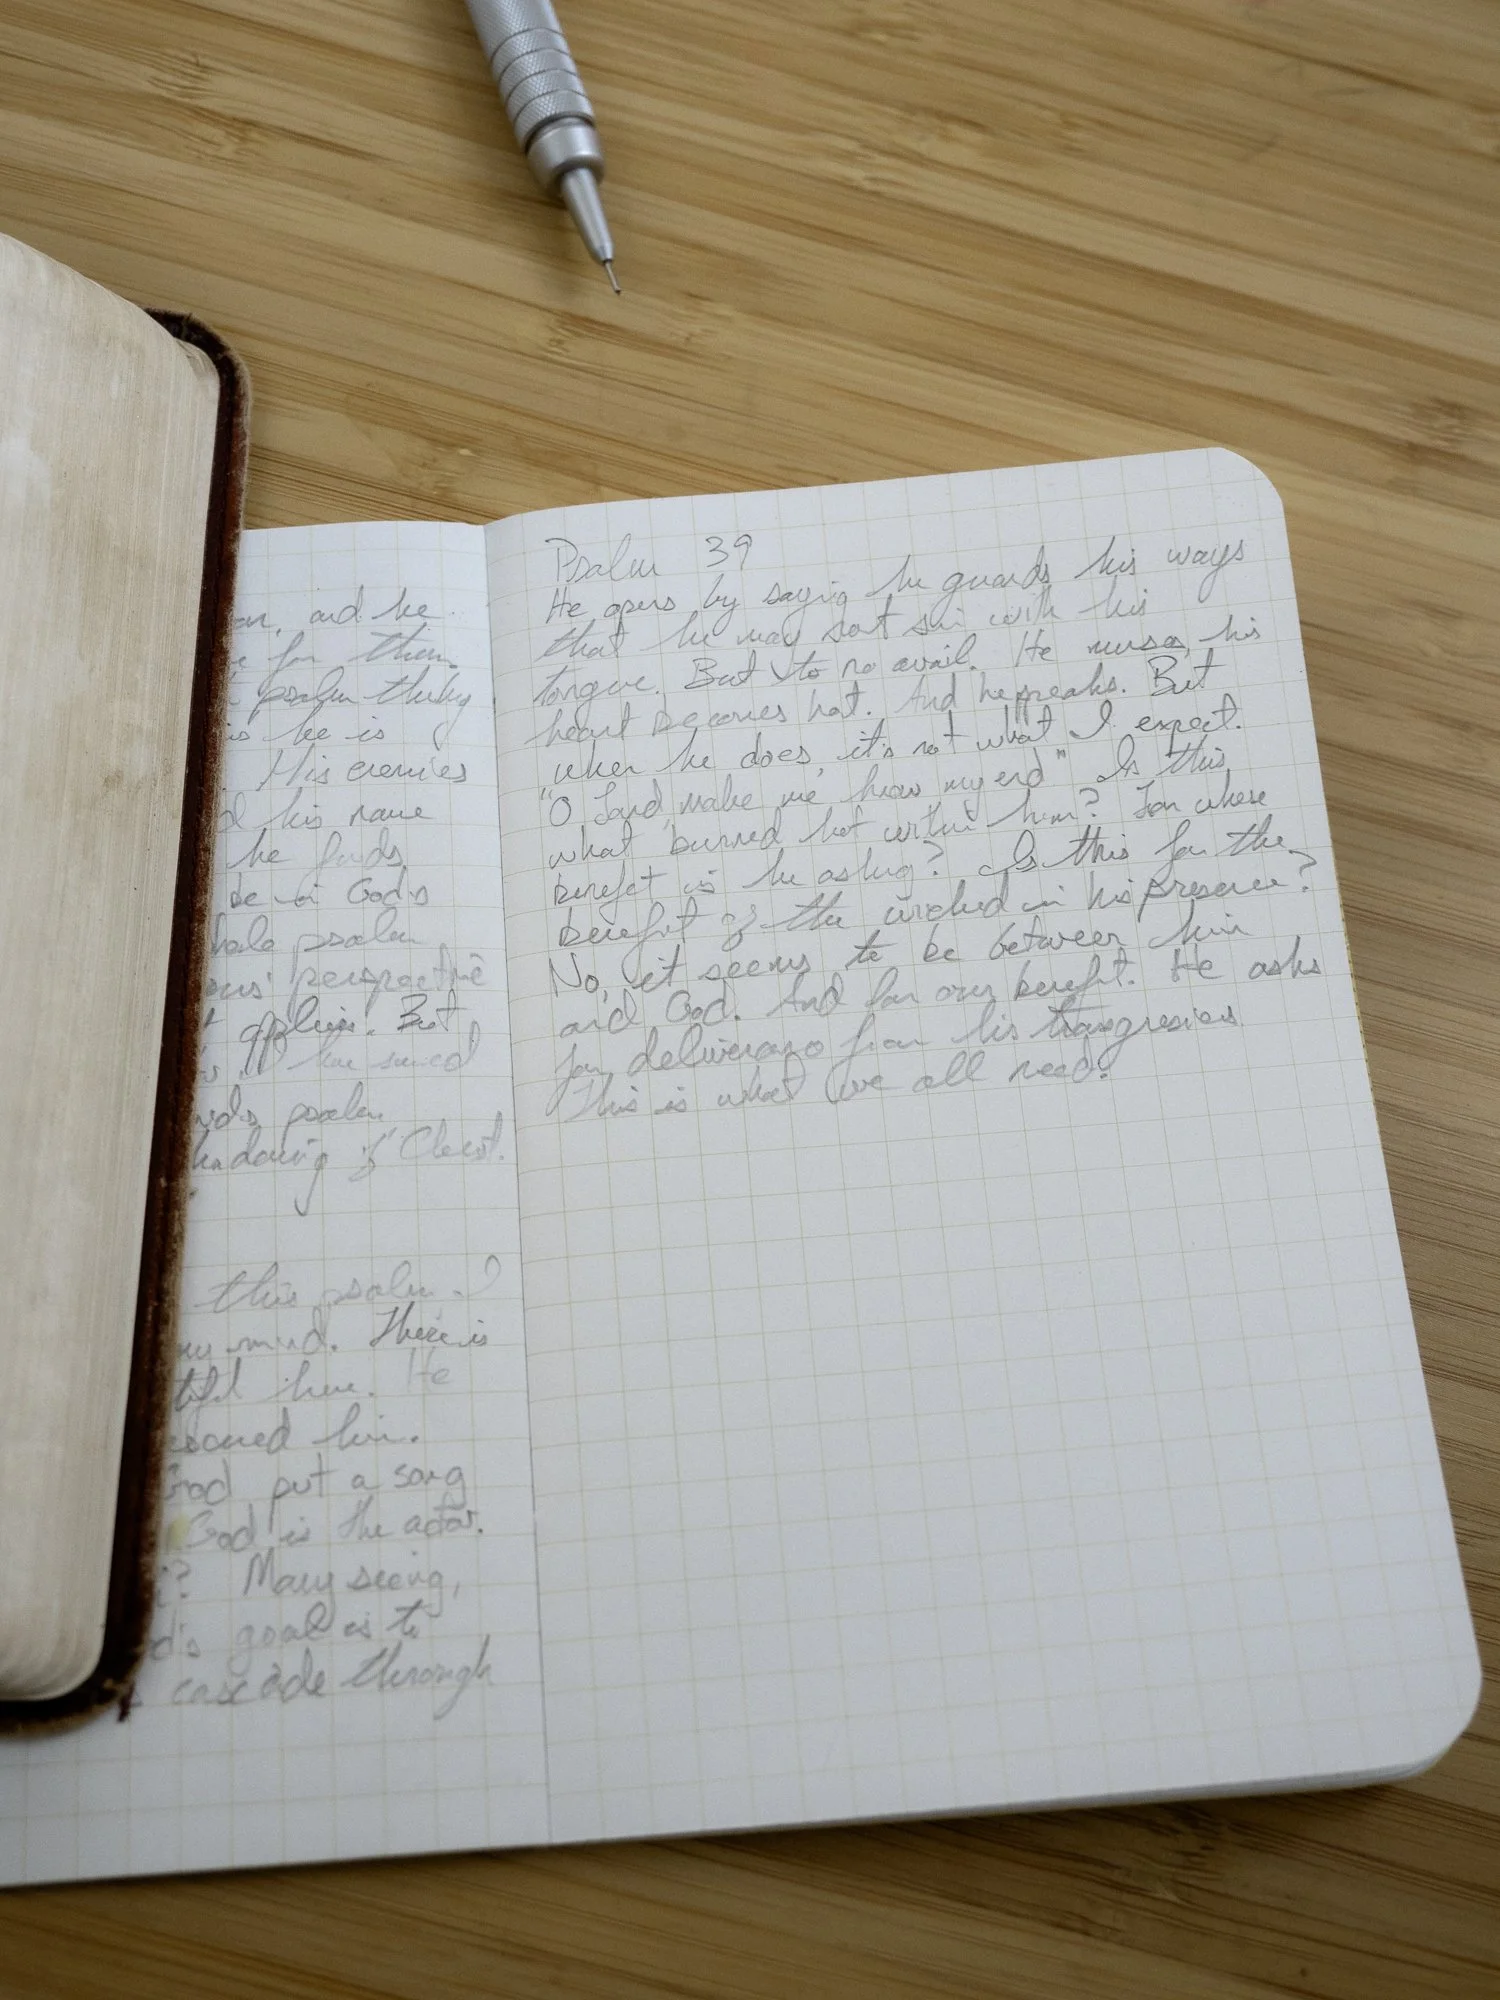 an, and he
for them.
psalm thinking
is he is
His enemies
his name
he finds
be in God's
whole psalm
perspective
applies. But
psalm
of Christ.
this psalm.
my mind. There is
here. He
rescued him.
God put a song
God is the actor.
Many seeing,
goal is to
cascade through
Psalm 39
He opens by saying he guards his ways
that he may not sin with his
tongue. But to no avail. He muses, his
heart becomes hot. And he speaks. But
when he does, it's not what I expect.
"O Lord, make me know my end" Is this
what burned hot within him? For whose
benefit is he asking? Is this for the
benefit of the wicked in his presence?
No, it seems to be between him
and God. And for our benefit. He asks
for deliverance from his transgresions
This is what we all need.